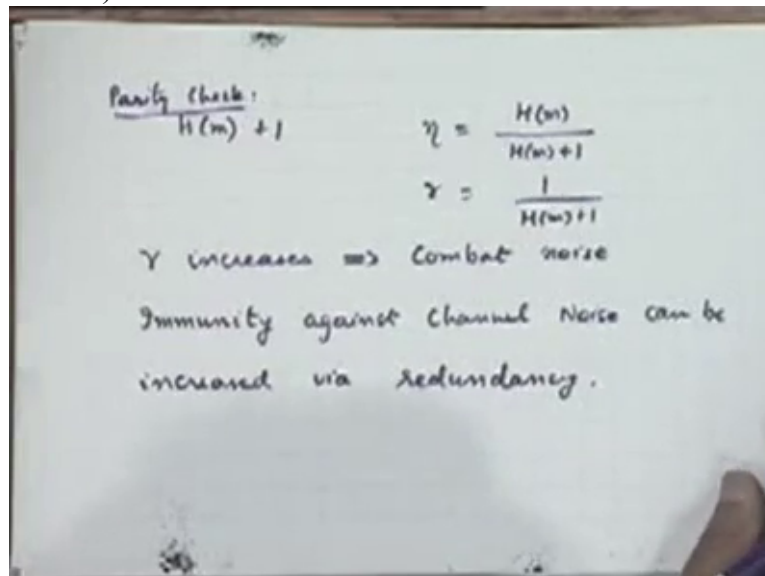 Parity Check:
H(m) + 1
η = H(m) / H(m)+1
γ = 1 / H(m)+1
γ increases => Combat noise
Immunity against Channel Noise can be
increased via redundancy.